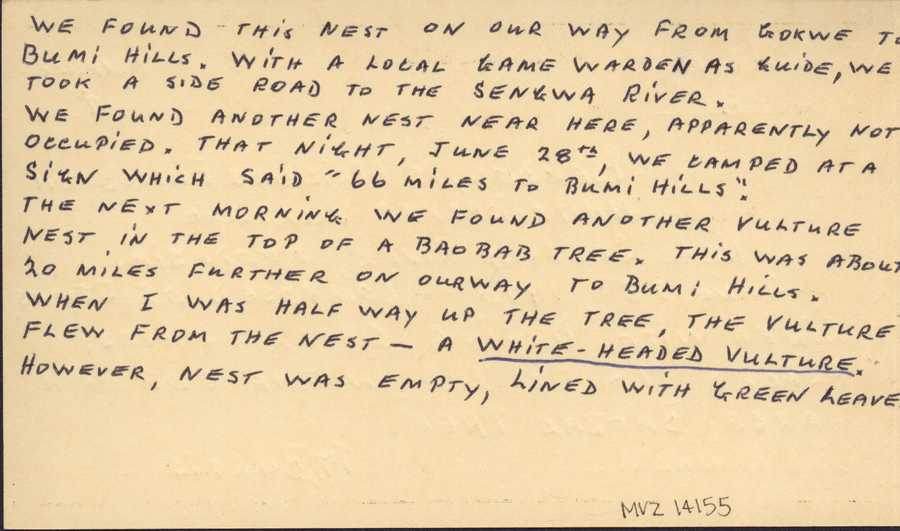 WE FOUND THIS NEST ON OUR WAY FROM GOKWE TO
BUMI HILLS. WITH A LOCAL GAME WARDEN AS GUIDE, WE
TOOK A SIDE ROAD TO THE SENGWA RIVER.
WE FOUND ANOTHER NEST NEAR HERE, APPARENTLY NOT
OCCUPIED. THAT NIGHT, JUNE 28TH, WE CAMPED AT A
SIGN WHICH SAID "66 MILES TO BUMI HILLS".
THE NEXT MORNING WE FOUND ANOTHER VULTURE
NEST IN THE TOP OF A BAOBAB TREE. THIS WAS ABOUT
20 MILES FURTHER ON OURWAY TO BUMI HILLS.
WHEN I WAS HALF WAY UP THE TREE, THE VULTURE
FLEW FROM THE NEST — A WHITE-HEADED VULTURE.
HOWEVER, NEST WAS EMPTY, LINED WITH GREEN LEAVE
MVZ 14155